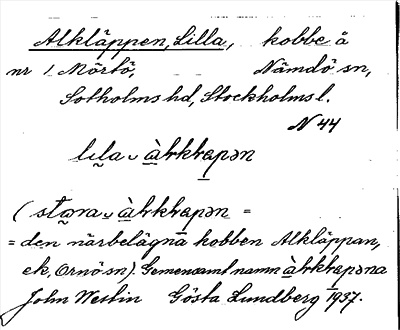 Alkläppen, Lilla, kobbe å
nr 1 Mörtö, Nämdö sn,
Sotholms hd, Stockholms l.
N 44
lıla ᴗ àlrkhapən
(stora ᴗ àlrkhapən =
= den närbelägna kobben Alkläppan,
ek, Ornö sn). Gemensamt namn àlrkhapəna
John Westin Gösta Lundberg 1937.